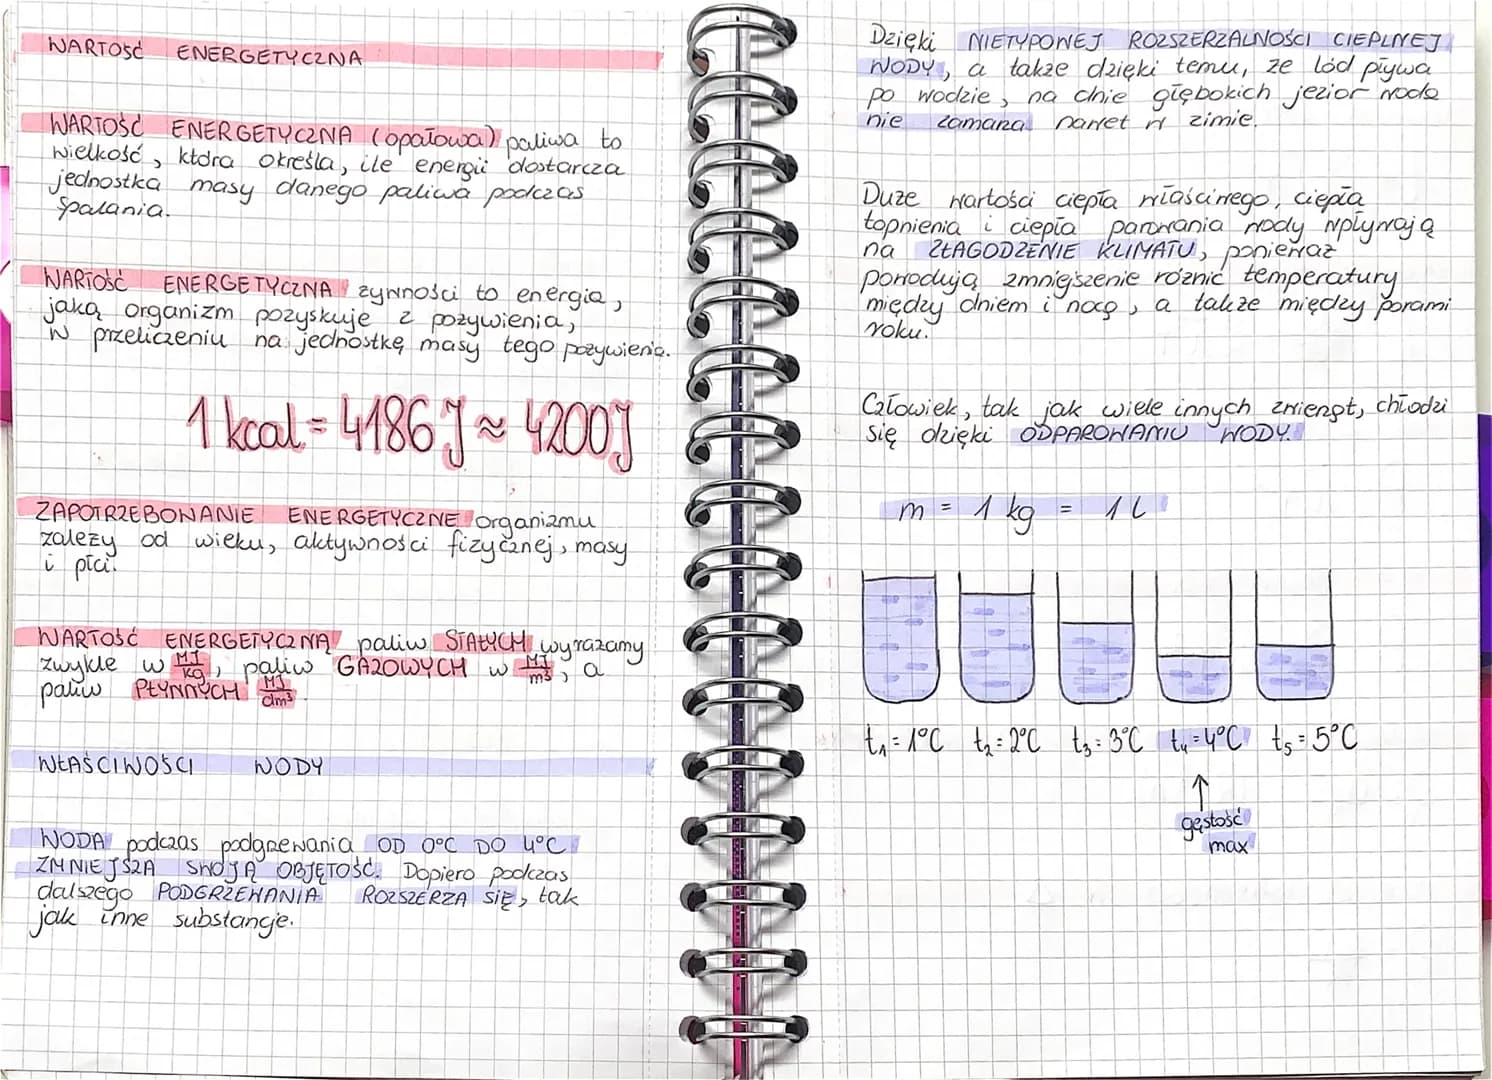 WARTOŚĆ ENERGETYCZNA
WARTOŚĆ ENERGETYCZNA (opałowa) paliwa to
wielkość, która określa, ile energii dostarcza
jednostka masy danego paliwa podczas
spalania.
WARTOŚĆ ENERGETYCZNA żywności to energia,
jaką organizm pozyskuje z pożywienia,
w przeliczeniu na jednostkę masy tego pożywienia.
1 kcal = 4186 J ≈ 4200 J
ZAPOTRZEBOWANIE ENERGETYCZNE organizmu
zależy od wieku, aktywności fizycznej, masy
i płci.
WARTOŚĆ ENERGETYCZNĄ paliw STAŁYCH wyrażamy
zwykle w MJ/kg, paliw GAZOWYCH w MJ/m³, a
paliw PŁYNNYCH MJ/dm³
WŁAŚCIWOŚCI WODY
WODA podczas podgrzewania OD 0°C DO 4°C
ZMNIEJSZA SWOJĄ OBJĘTOŚĆ. Dopiero podczas
dalszego PODGRZEWANIA ROZSZERZA SIĘ, tak
jak inne substancje.
Dzięki NIETYPOWEJ ROZSZERZALNOŚCI CIEPLNEJ
WODY, a także dzięki temu, że lód pływa
po wodzie, na dnie głębokich jezior woda
nie zamarza nawet w zimie.
Duże wartości ciepła właściwego, ciepła
topnienia i ciepła parowania wody wpływają
na ZŁAGODZENIE KLIMATU, ponieważ
powodują zmniejszenie różnic temperatury
między dniem i nocą, a także między porami
roku.
Człowiek, tak jak wiele innych zwierząt, chłodzi
się dzięki ODPAROWANIU WODY.
m = 1 kg = 1 l
t₁ = 1°C t₂ = 2°C t₃ = 3°C t₄ = 4°C t₅ = 5°C
↑
gęstość
max